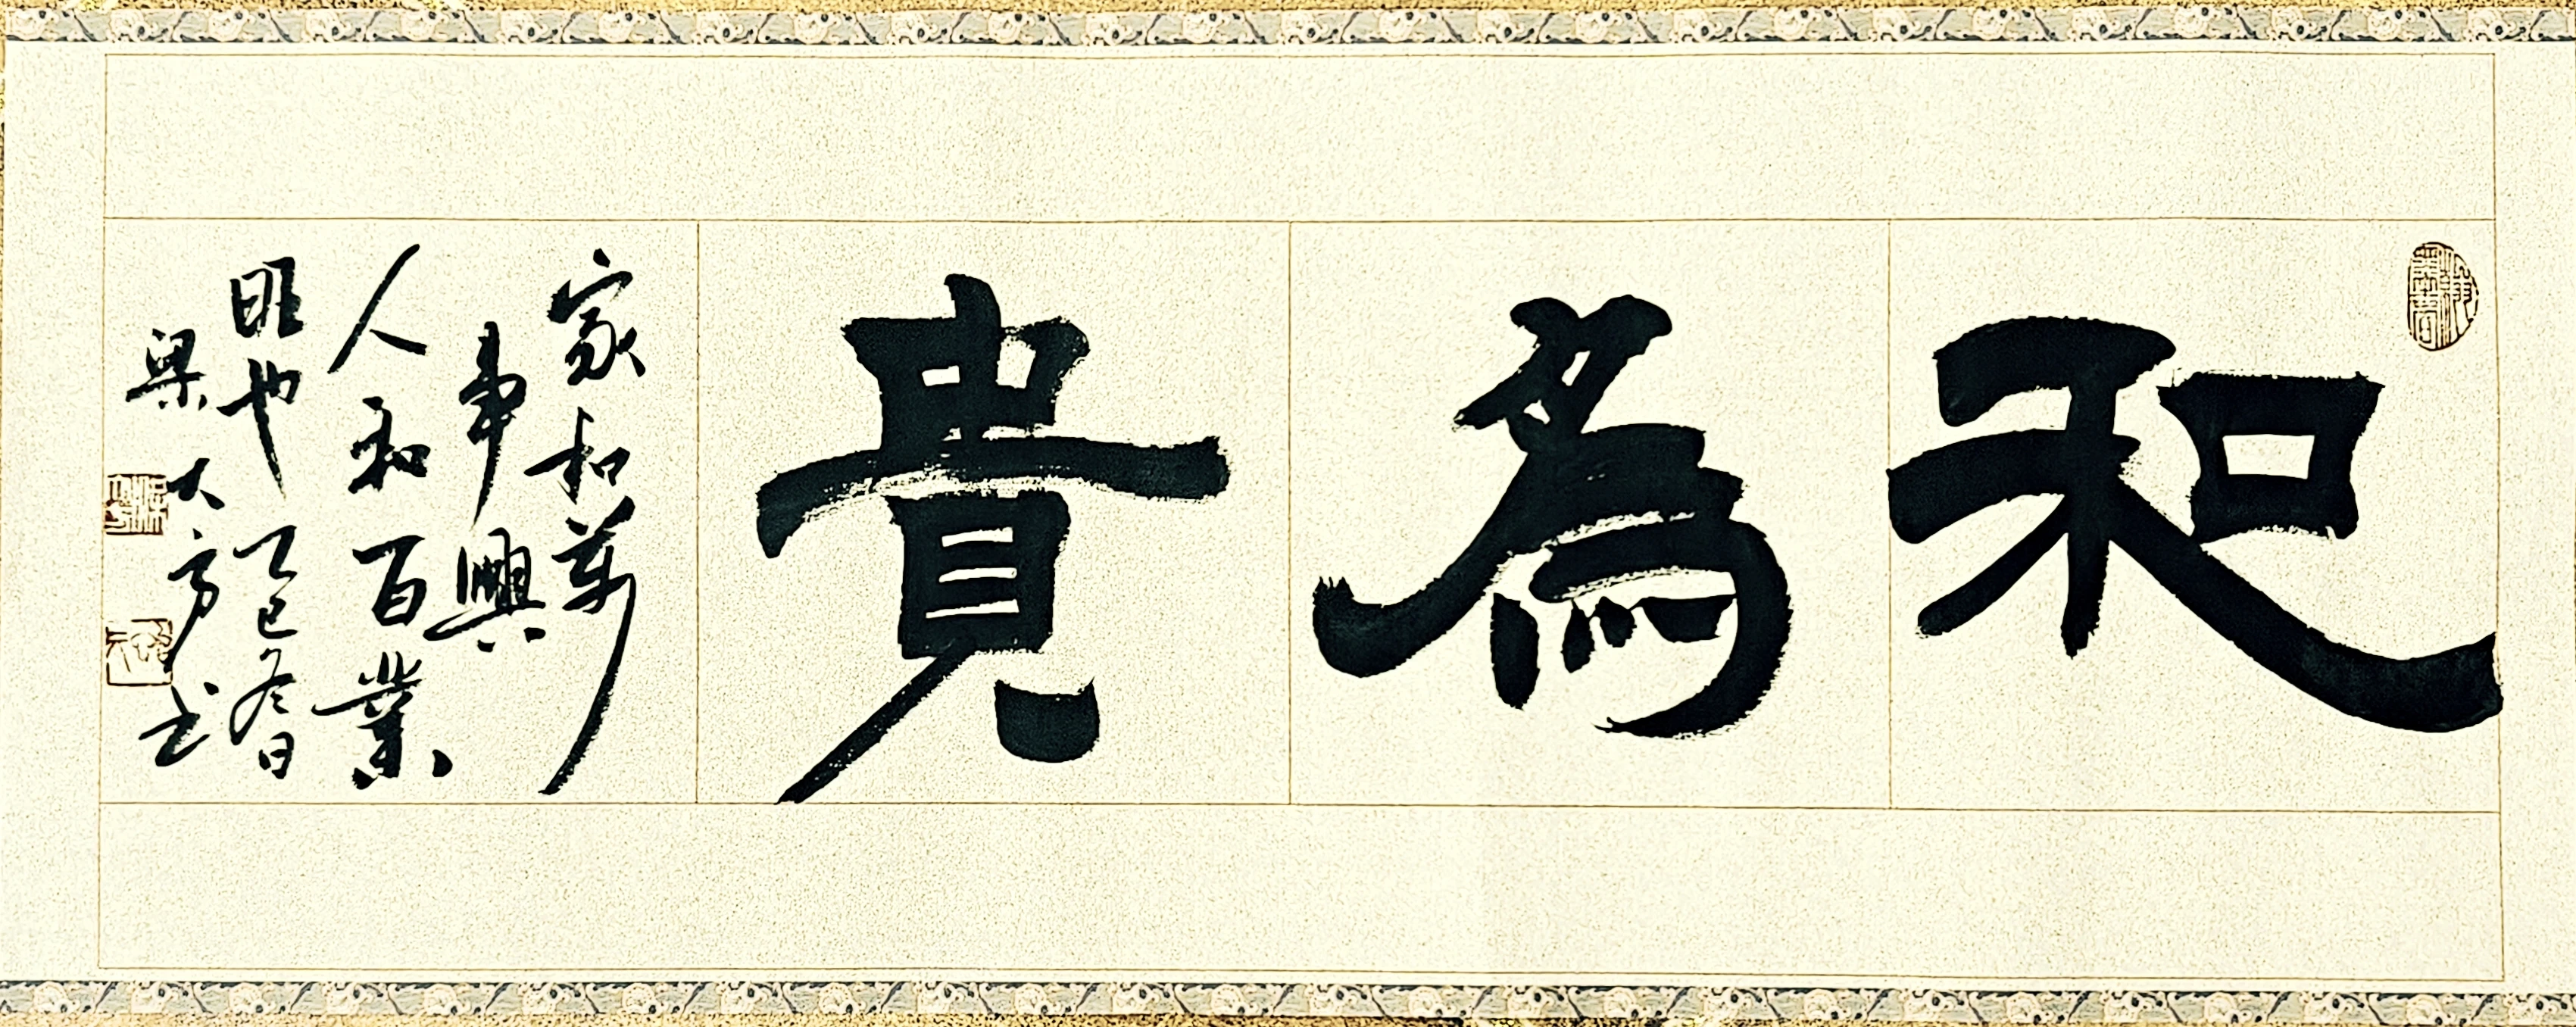 和為貴
家和萬
事興
人和百業
旺也 乙巳冬日
梁大方書